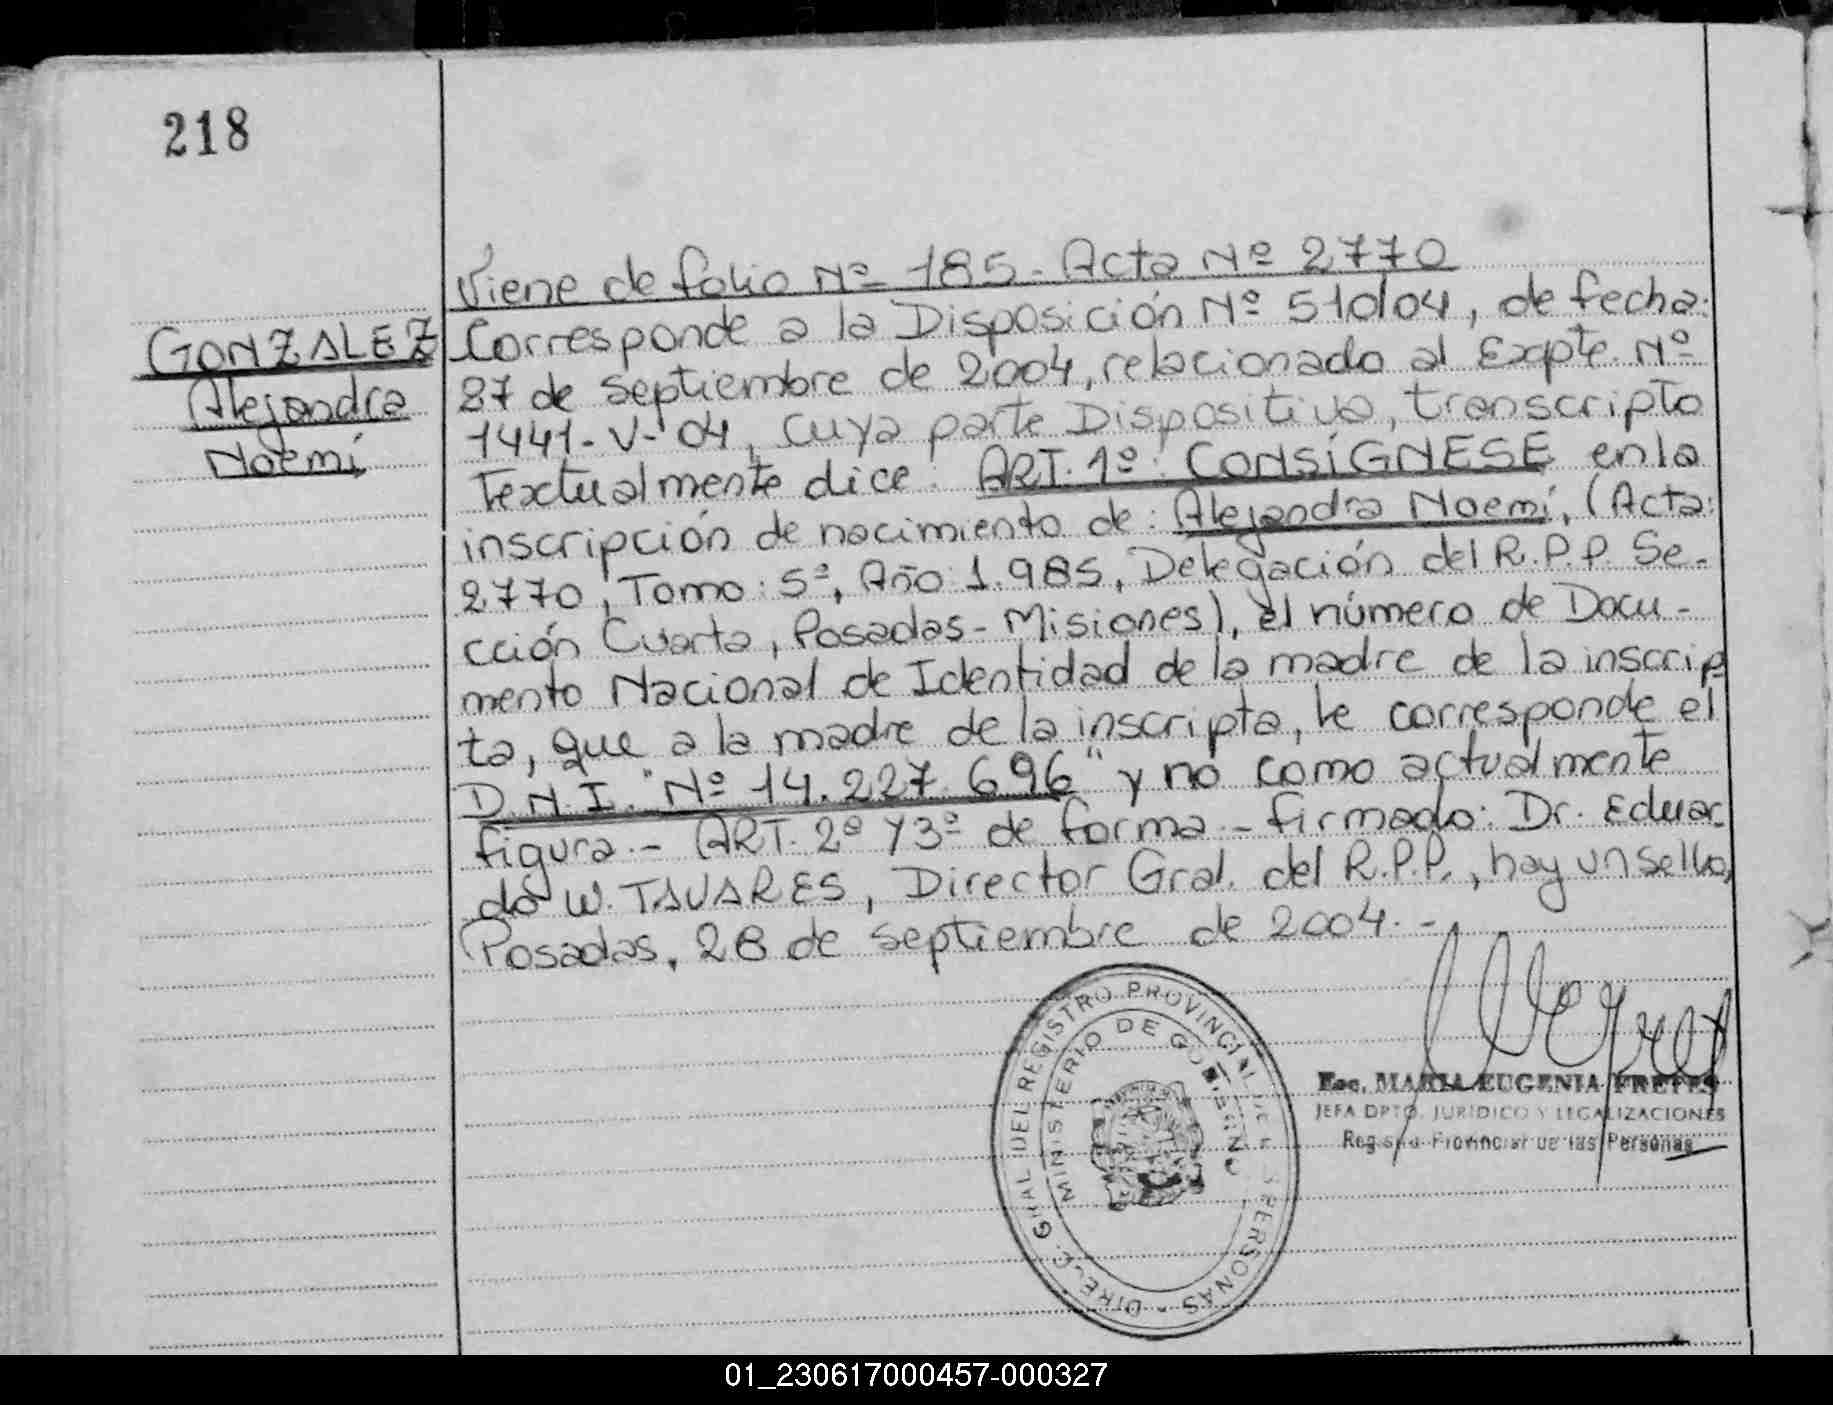 218
Viene de folio Nº 185 - Acta Nº 2770
GONZALEZ
Alejandra
Noemí
Corresponde a la Disposición Nº 510/04, de fecha:
27 de septiembre de 2004, relacionado al Expte. Nº
1441-V-04, cuya parte Dispositiva, transcripto
textualmente dice: ART. 1º: CONSÍGNESE en la
inscripción de nacimiento de: Alejandra Noemí, (Acta:
2770, Tomo: 5º, Año 1.985, Delegación del R.P.P. Se-
cción Cuarta, Posadas - Misiones), el número de Docu-
mento Nacional de Identidad de la madre de la inscrip
ta, que a la madre de la inscripta, le corresponde el
D.N.I. "Nº 14.227.696" y no como actualmente
figura.- ART. 2º y 3º de forma.- firmado: Dr. Eduar
do W. TAVARES, Director Gral. del R.P.P., hay un sello,
Posadas, 28 de septiembre de 2004.-
DIREC. GRAL DEL REGISTRO PROVINCIAL DE LAS PERSONAS
MINISTERIO DE GOBIERNO
Esc. MARIA EUGENIA FRETES
JEFA DPTO. JURIDICO Y LEGALIZACIONES
Registro Provincial de las Personas
01_230617000457-000327